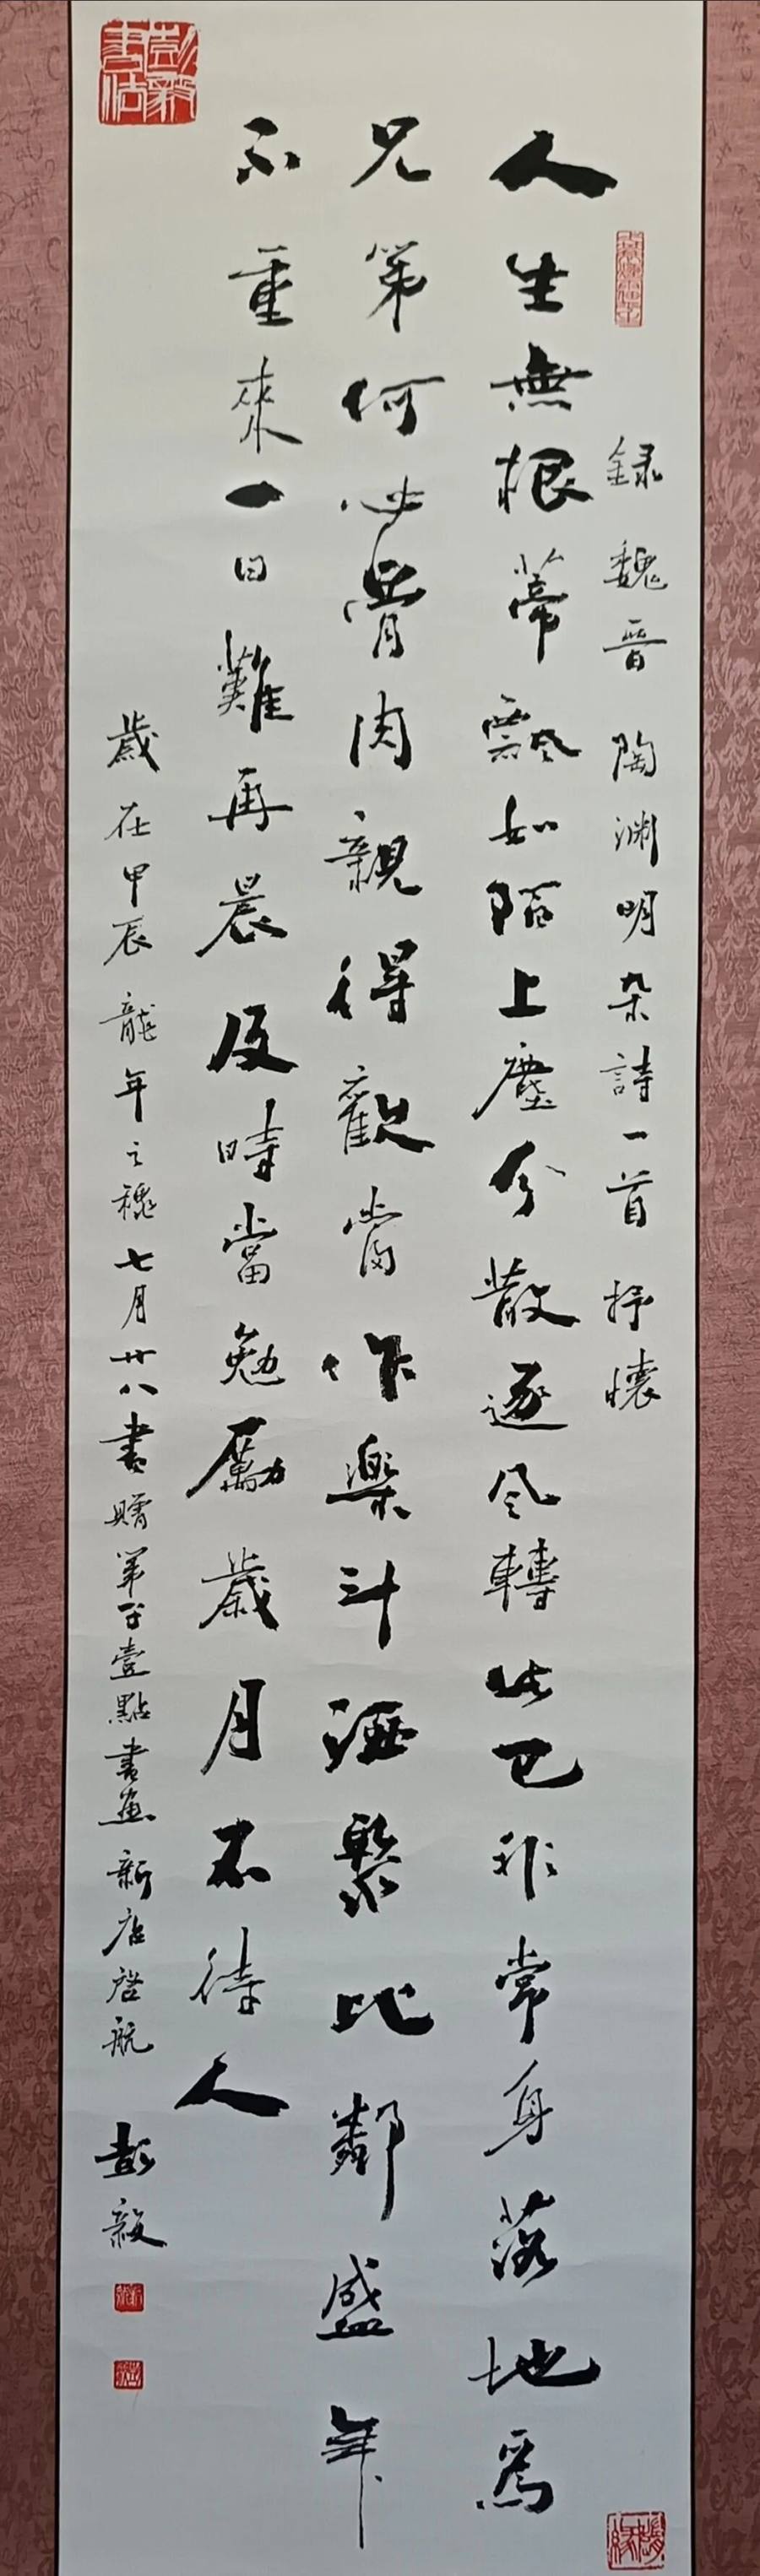 録魏晋陶渊明杂詩一首抒懷
人生無根蒂飄如陌上塵分散逐风轉此已非常身落地爲
兄弟何必骨肉親得歡當作樂斗酒聚比鄰盛年
不重來一日難再晨及時當勉勵歲月不待人
歲在甲辰龍年之穐七月廿八書贈弟子壹點書畫新店启航 彭毅